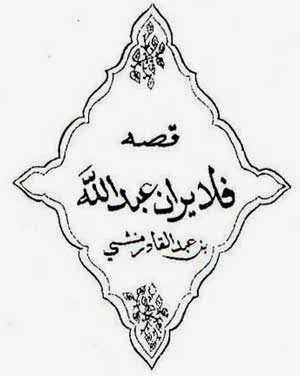 قصه
فلايران عبدالله
بن عبدالقادر منشي